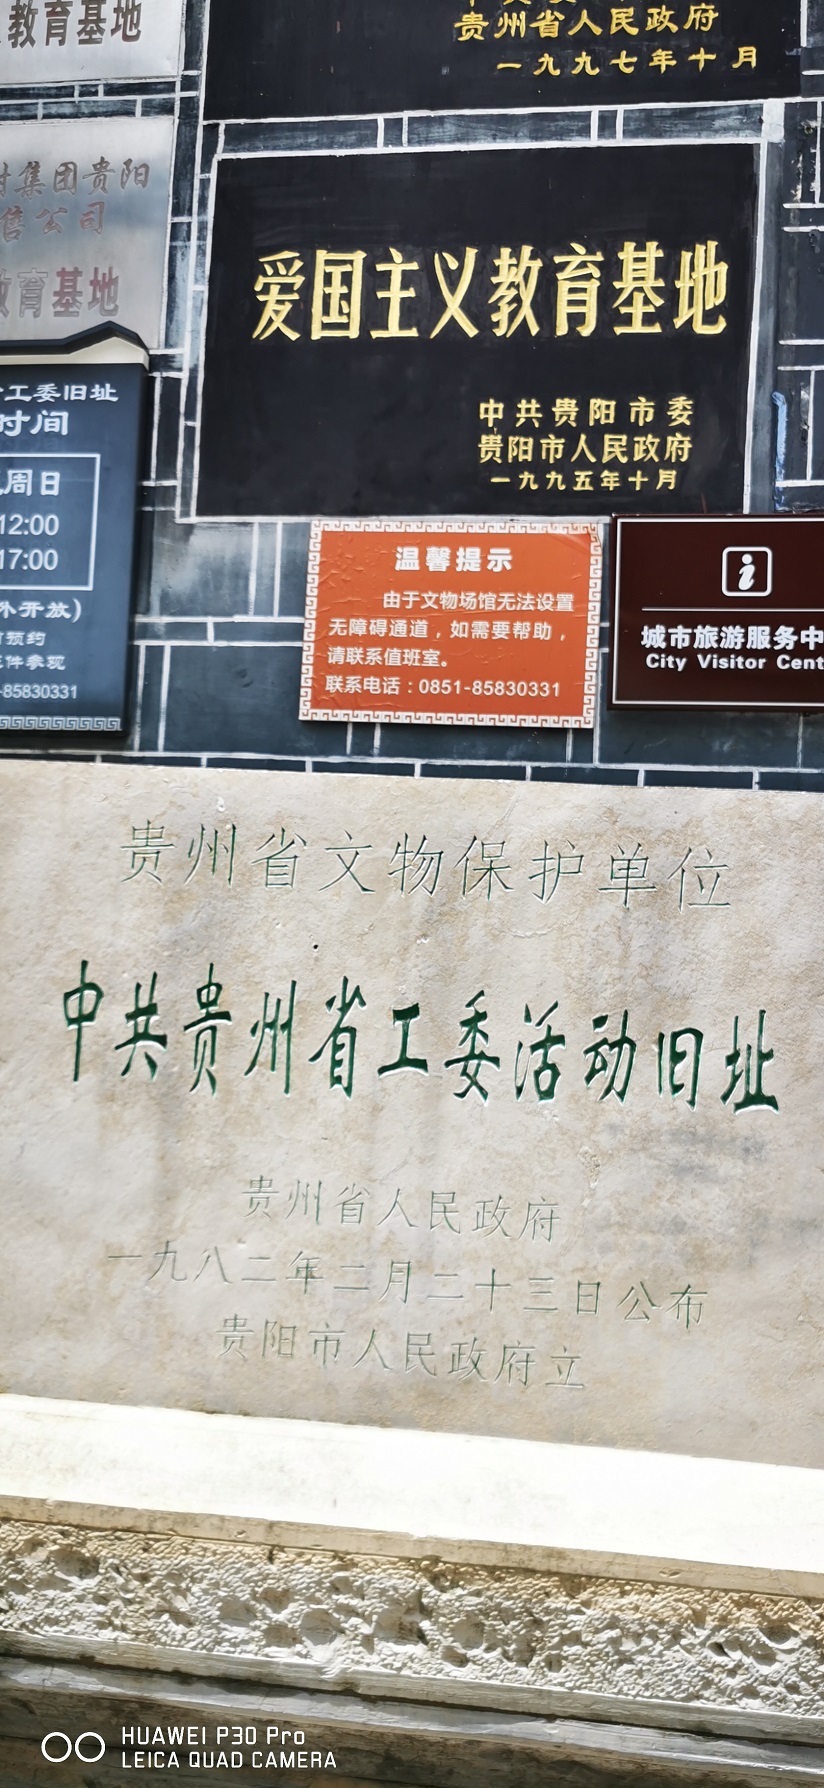 教育基地
贵州省人民政府
一九九七年十月
集团贵阳
售公司
教育基地
爱国主义教育基地
中共贵阳市委
贵阳市人民政府
一九九五年十月
工委旧址
时间
周日
12:00
17:00
外开放)
预约
件参观
-85830331
温馨提示
由于文物场馆无法设置
无障碍通道，如需要帮助，
请联系值班室。
联系电话：0851-85830331
i
城市旅游服务中
City Visitor Cent
贵州省文物保护单位
中共贵州省工委活动旧址
贵州省人民政府
一九八二年二月二十三日公布
贵阳市人民政府立
HUAWEI P30 Pro
LEICA QUAD CAMERA